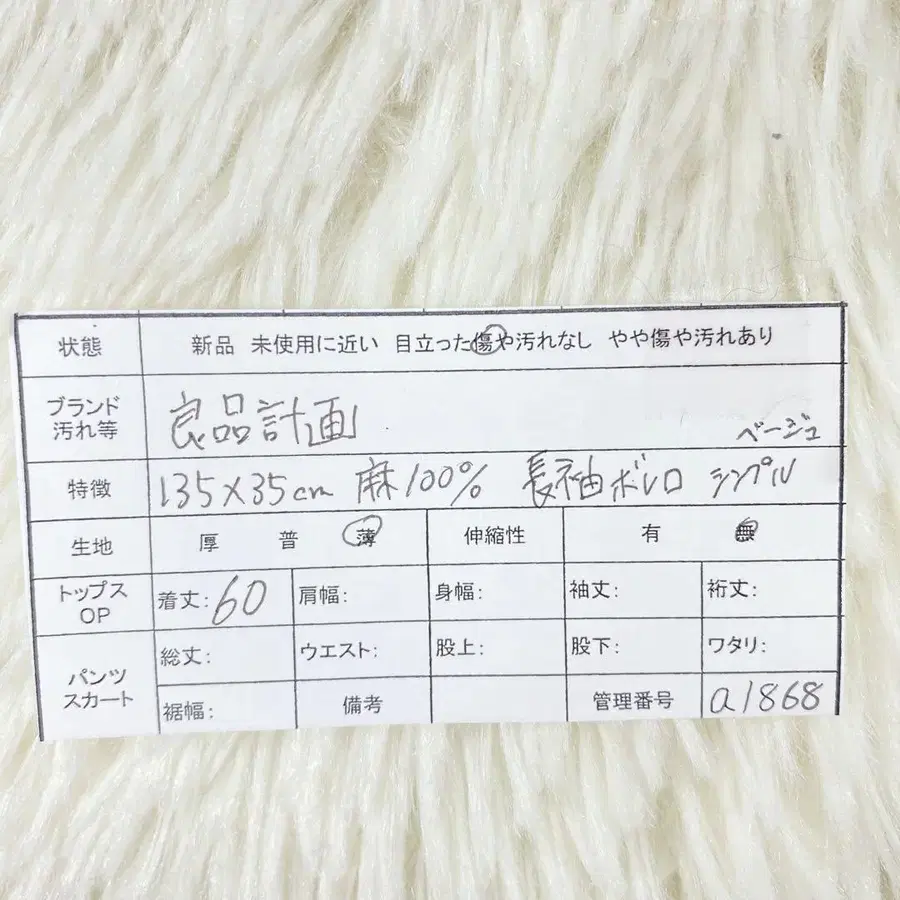 状態 新品 未使用に近い 目立った傷や汚れなし やや傷や汚れあり
ブランド
汚れ等 良品計画 ベージュ
特徴 135×35cm 麻100% 長袖ボレロ シンプル
生地 厚 普 薄 伸縮性 有 無
トップス
OP 着丈:60 肩幅: 身幅: 袖丈: 裄丈:
パンツ
スカート 総丈: ウエスト: 股上: 股下: ワタリ:
裾幅: 備考 管理番号 a1868